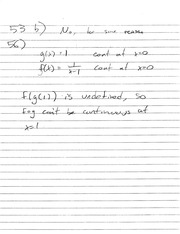 53 b) No, for same reason
56)
g(x) = 1 cont at x=0
f(x) = 1/(x-1) cont at x=0
f(g(x)) is undefined, so
f∘g can't be continuous at
x=1